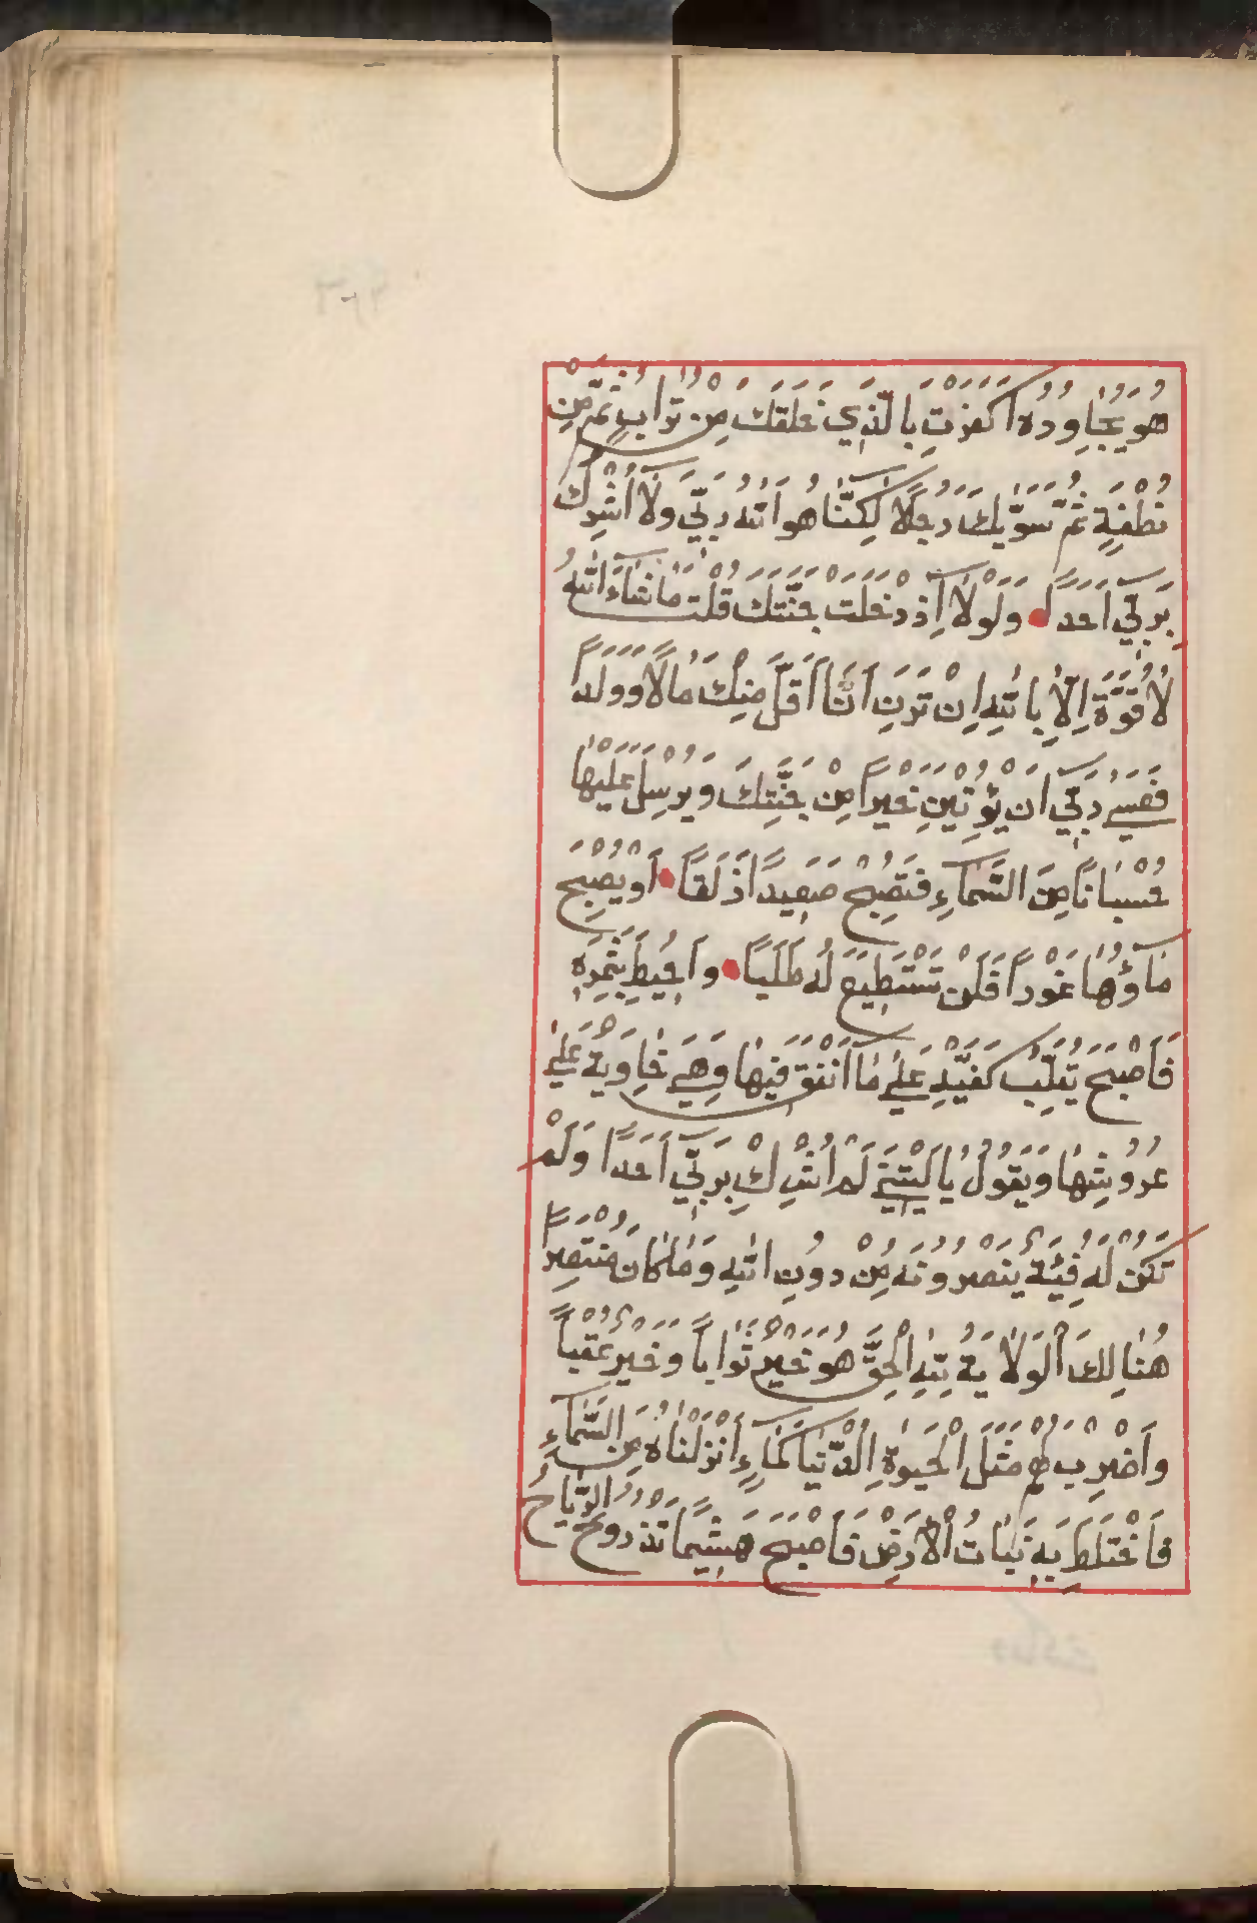 هُوَ يُحَاوِرُهُ اَكَفَرْتَ بِالَّذِي خَلَقَكَ مِنْ تُرَابٍ ثُمَّ مِنْ
نُطْفَةٍ ثُمَّ سَوّٰيكَ رَجُلًا لٰكِنَّا هُوَ اَللّٰهُ رَبِّي وَلَا اُشْرِكُ
بِرَبِّي اَحَدًا وَلَوْلَا اِذْ دَخَلْتَ جَنَّتَكَ قُلْتَ مَا شَاءَ اللّٰهُ
لَا قُوَّةَ اِلَّا بِاللّٰهِ اِنْ تَرَنِ اَنَا اَقَلَّ مِنْكَ مَالًا وَوَلَدًا
فَعَسٰى رَبِّي اَنْ يُؤْتِيَنِ خَيْرًا مِنْ جَنَّتِكَ وَيُرْسِلَ عَلَيْهَا
حُسْبَانًا مِنَ السَّمَاءِ فَتُصْبِحَ صَعِيدًا زَلَقًا اَوْ يُصْبِحَ
مَاؤُهَا غَوْرًا فَلَنْ تَسْتَطِيعَ لَهُ طَلَبًا وَاُحِيطَ بِثَمَرِهِ
فَاَصْبَحَ يُقَلِّبُ كَفَّيْهِ عَلٰى مَا اَنْفَقَ فِيهَا وَهِيَ خَاوِيَةٌ عَلٰى
عُرُوشِهَا وَيَقُولُ يَا لَيْتَنِي لَمْ اُشْرِكْ بِرَبِّي اَحَدًا وَلَمْ
تَكُنْ لَهُ فِئَةٌ يَنْصُرُونَهُ مِنْ دُونِ اللّٰهِ وَمَا كَانَ مُنْتَصِرًا
هُنَالِكَ الْوَلَايَةُ لِلّٰهِ الْحَقِّ هُوَ خَيْرٌ ثَوَابًا وَخَيْرٌ عُقْبًا
وَاَضْرِبْ لَهُمْ مَثَلَ الْحَيٰوةِ الدُّنْيَا كَمَاءٍ اَنْزَلْنَاهُ مِنَ السَّمَاءِ
فَاخْتَلَطَ بِهِ نَبَاتُ الْاَرْضِ فَاَصْبَحَ هَشِيمًا تَذْرُوهُ الرِّيَاحُ